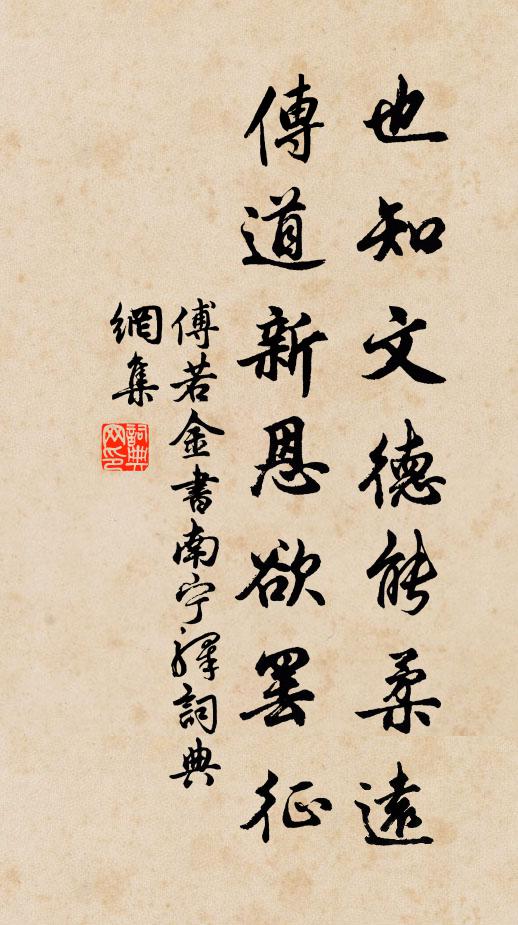 也知文德能柔遠
傳道新恩欲罷征
傅若金書南宁驿詞典
網集
詞典網印